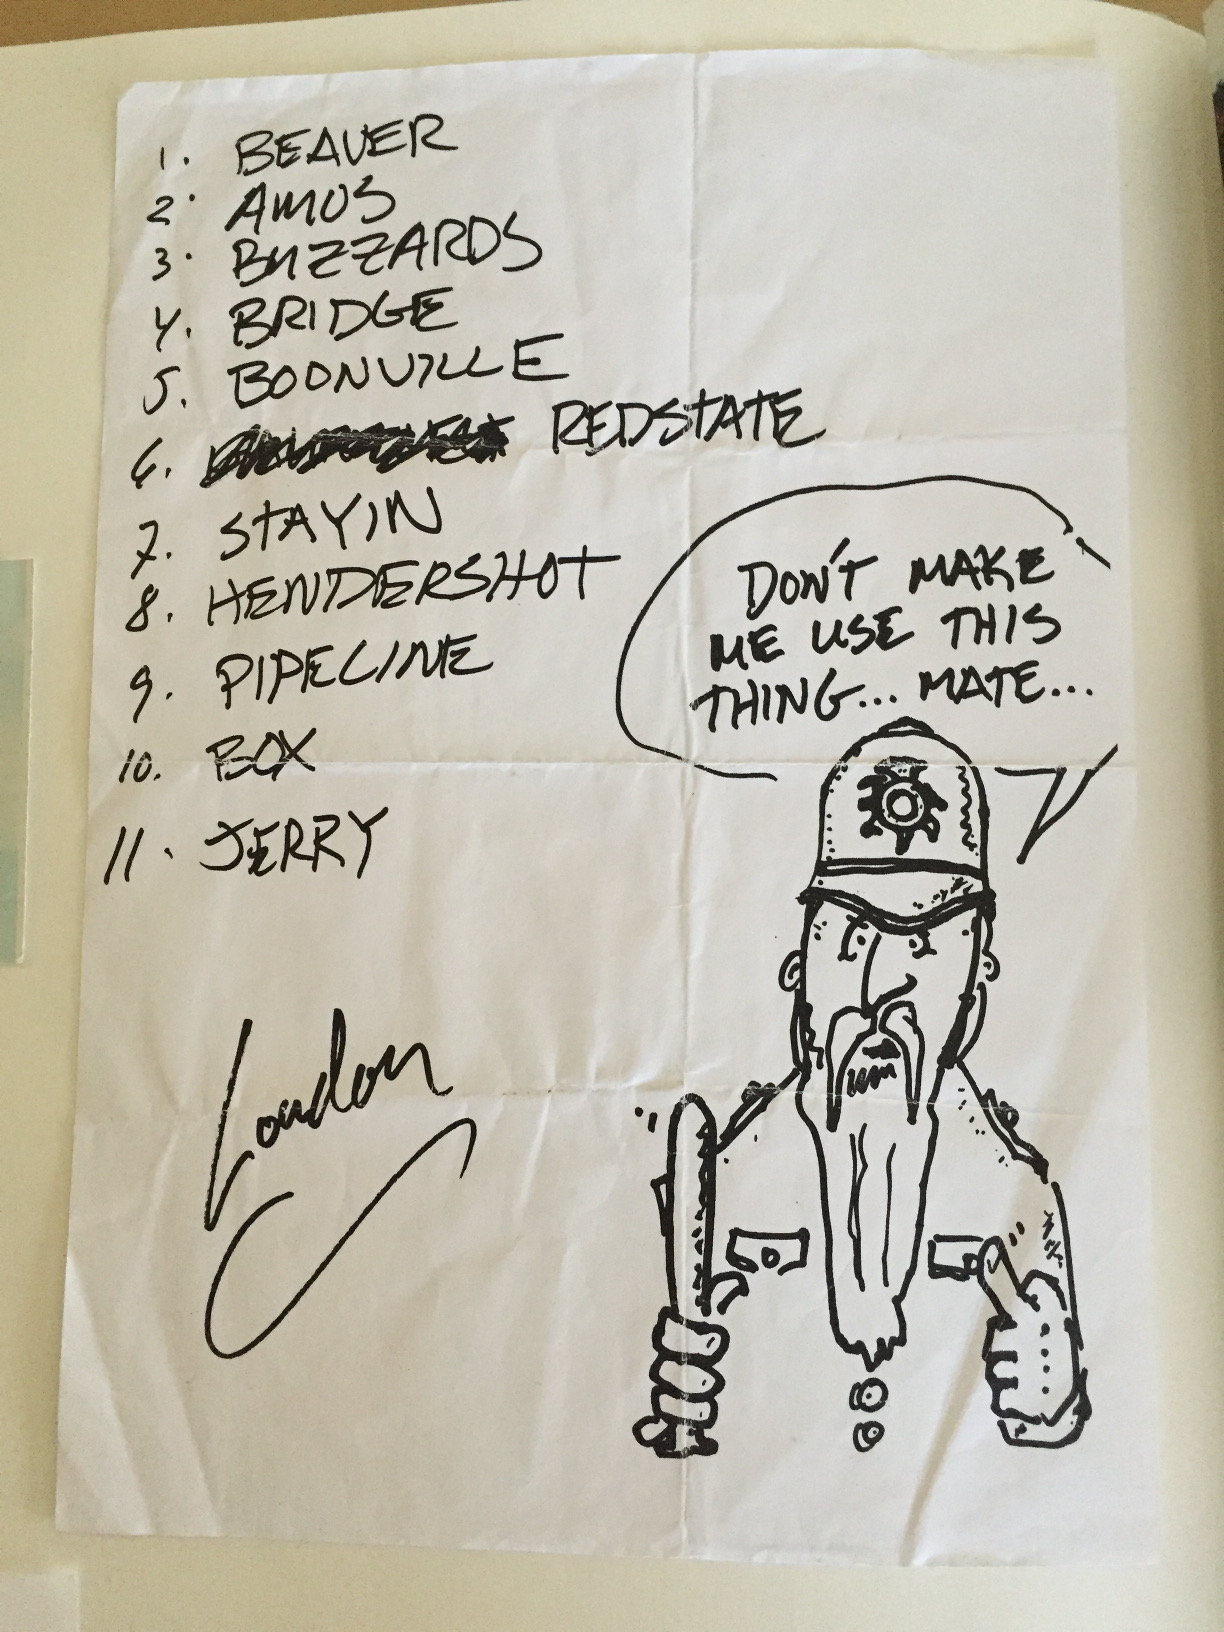 1. BEAVER
2. AMOS
3. BUZZARDS
4. BRIDGE
5. BOONVILLE
6. REDSTATE
7. STAYIN
8. HENDERSHOT
9. PIPELINE
10. BOX
11. JERRY
DON'T MAKE
ME USE THIS
THING... MATE...
London